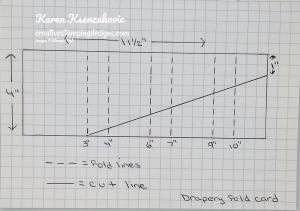 Karen Ksenzakovic
creativestampingdesigns.com
11 1/2"
1"
4"
3" 4" 6" 7" 9" 10"
--- = fold lines
— = cut line
Drapery Fold card